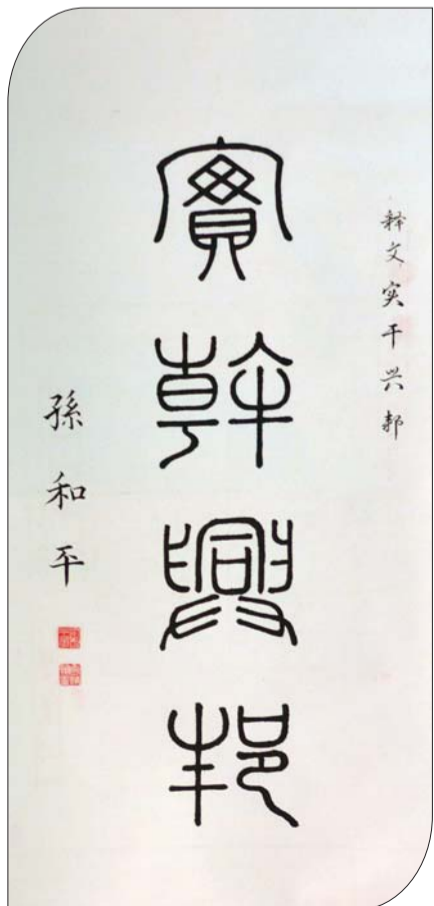 释文实干兴邦
實幹興邦
孫和平